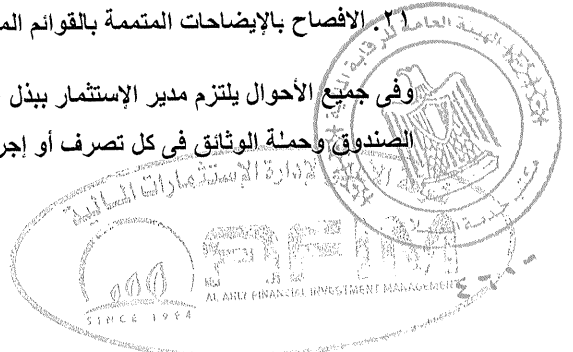 ٢١. الافصاح بالإيضاحات المتممة بالقوائم
وفى جميع الأحوال يلتزم مدير الإستثمار ببذل
الصندوق وحملة الوثائق فى كل تصرف أو
الهيئة العامة للرقابة
مكتب خدمة
لإدارة الإستثمارات المالية
AFIM
AL AHLY FINANCIAL INVESTMENT MANAGEMENT
SINCE 1994